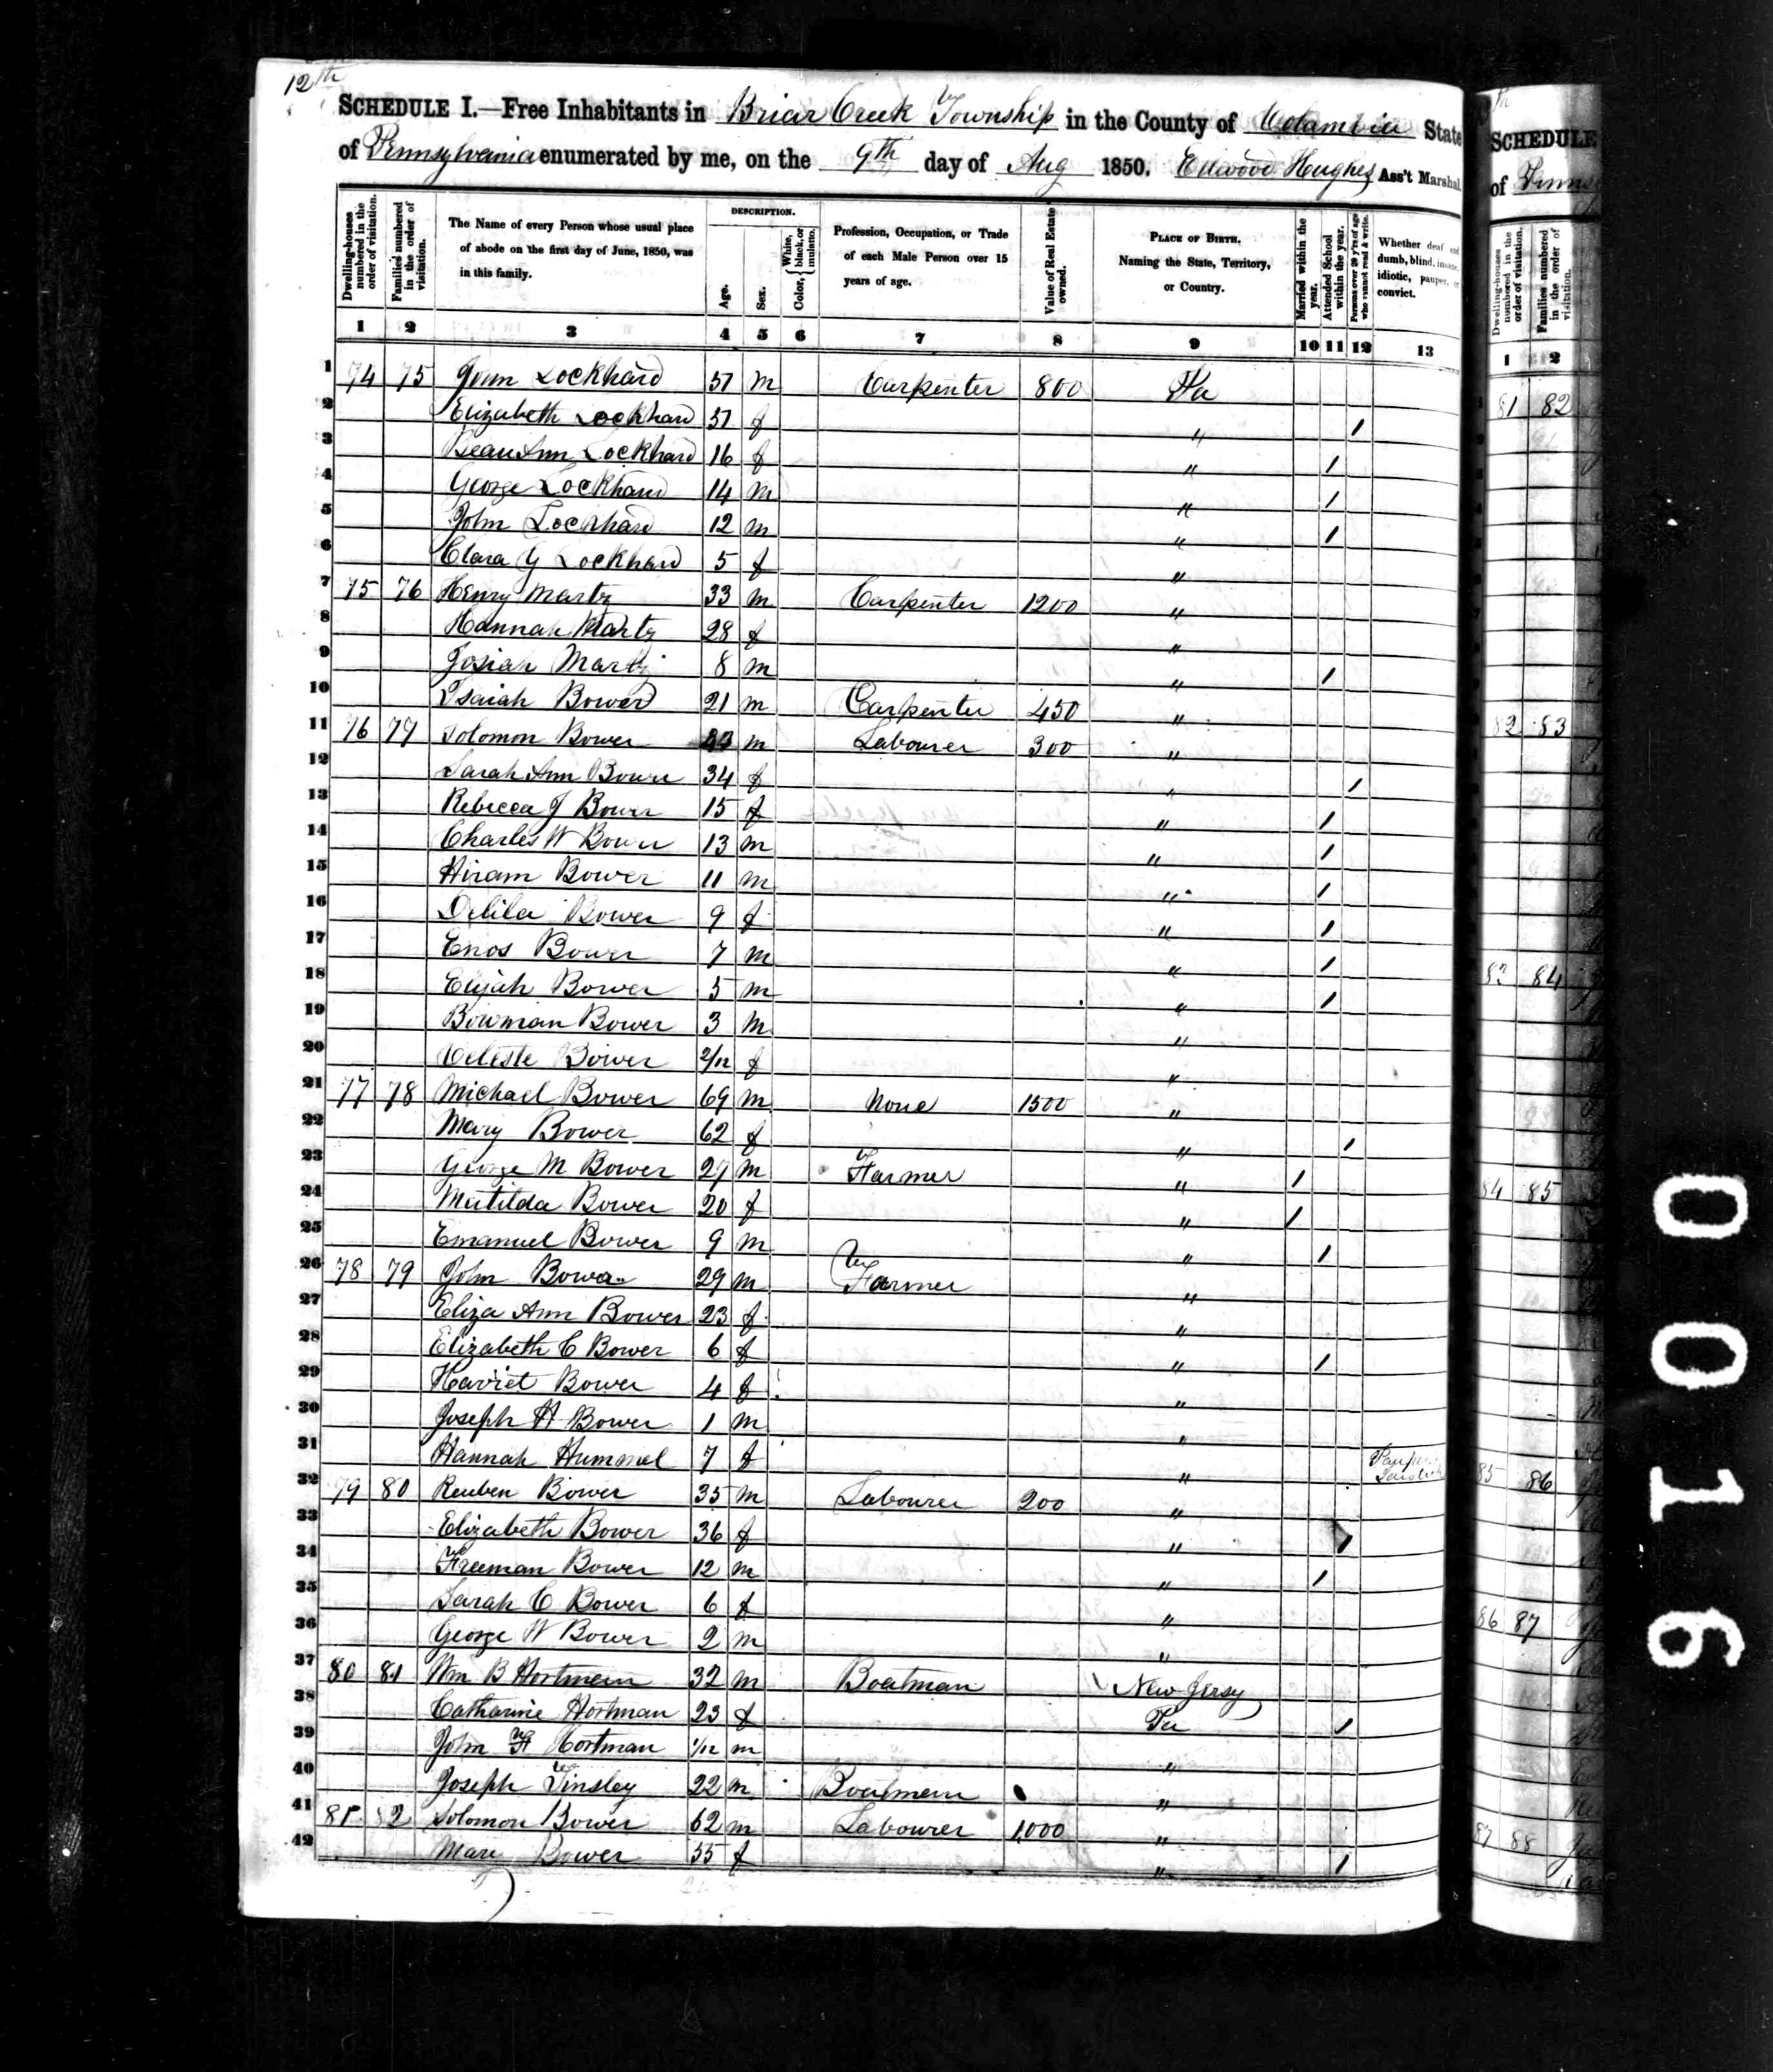 12th
SCHEDULE I.—Free Inhabitants in Briar Creek Township in the County of Columbia State
of Pennsylvania enumerated by me, on the 9th day of Aug 1850. Ellwood Hughes Ass't Marshal
Dwelling-houses numbered in the order of visitation.
Families numbered in the order of visitation.
The Name of every Person whose usual place of abode on the first day of June, 1850, was in this family.
DESCRIPTION.
Age.
Sex.
Color, { White, black, or mulatto.
Profession, Occupation, or Trade of each Male Person over 15 years of age.
Value of Real Estate owned.
PLACE OF BIRTH. Naming the State, Territory, or Country.
Married within the year.
Attended School within the year.
Persons over 20 y'rs of age who cannot read & write.
Whether deaf and dumb, blind, insane, idiotic, pauper, or convict.
1 2 3 4 5 6 7 8 9 10 11 12 13
1 74 75 John Lockhard 37 m Carpenter 800 Pa
2 Elizabeth Lockhard 37 f " /
3 Lockhard 16 f " /
4 George Lockhard 14 m " /
5 John Lockhard 12 m " /
6 Clara G Lockhard 5 f "
7 75 76 Henry Martz 33 m Carpenter 1200 "
8 Hannah Martz 28 f "
9 Josiah Martz 8 m " /
10 Isaiah Bower 21 m Carpenter 450 "
11 76 77 Solomon Bower m Labourer 300 "
12 Sarah Ann Bower 34 f " /
13 Rebecca J Bower 15 f " /
14 Charles W Bower 13 m " /
15 Hiram Bower 11 m " /
16 Delila Bower 9 f " /
17 Enos Bower 7 m " /
18 Elijah Bower 5 m " /
19 Bowman Bower 3 m "
20 Celeste Bower 2/12 f "
21 77 78 Michael Bower 69 m None 1500 "
22 Mary Bower 62 f " /
23 George M Bower 27 m Farmer " /
24 Matilda Bower 20 f " /
25 Emanuel Bower 9 m " /
26 78 79 John Bower 29 m Farmer "
27 Eliza Ann Bower 23 f "
28 Elizabeth C Bower 6 f " /
29 Harriet Bower 4 f "
30 Joseph H Bower 1 m "
31 Hannah Hummel 7 f " Pauper
32 79 80 Reuben Bower 35 m Labourer 200 "
33 Elizabeth Bower 36 f " /
34 Freeman Bower 12 m " /
35 Sarah C Bower 6 f "
36 George W Bower 2 m "
37 80 81 Wm B Hortman 32 m Boatman New Jersy
38 Catharine Hortman 23 f Pa /
39 John H Hortman 1/12 m "
40 Joseph Tinsley 22 m Boatman "
41 81 82 Solomon Bower 62 m Labourer 1,000 "
42 Mary Bower 55 f " /
SCHEDULE
of Penns
Dwelling-houses numbered in the order of visitation.
Families numbered in the order of visitation.
1 2
81 82
82 83
83 84
84 85
85 86
86 87
87 88
0016